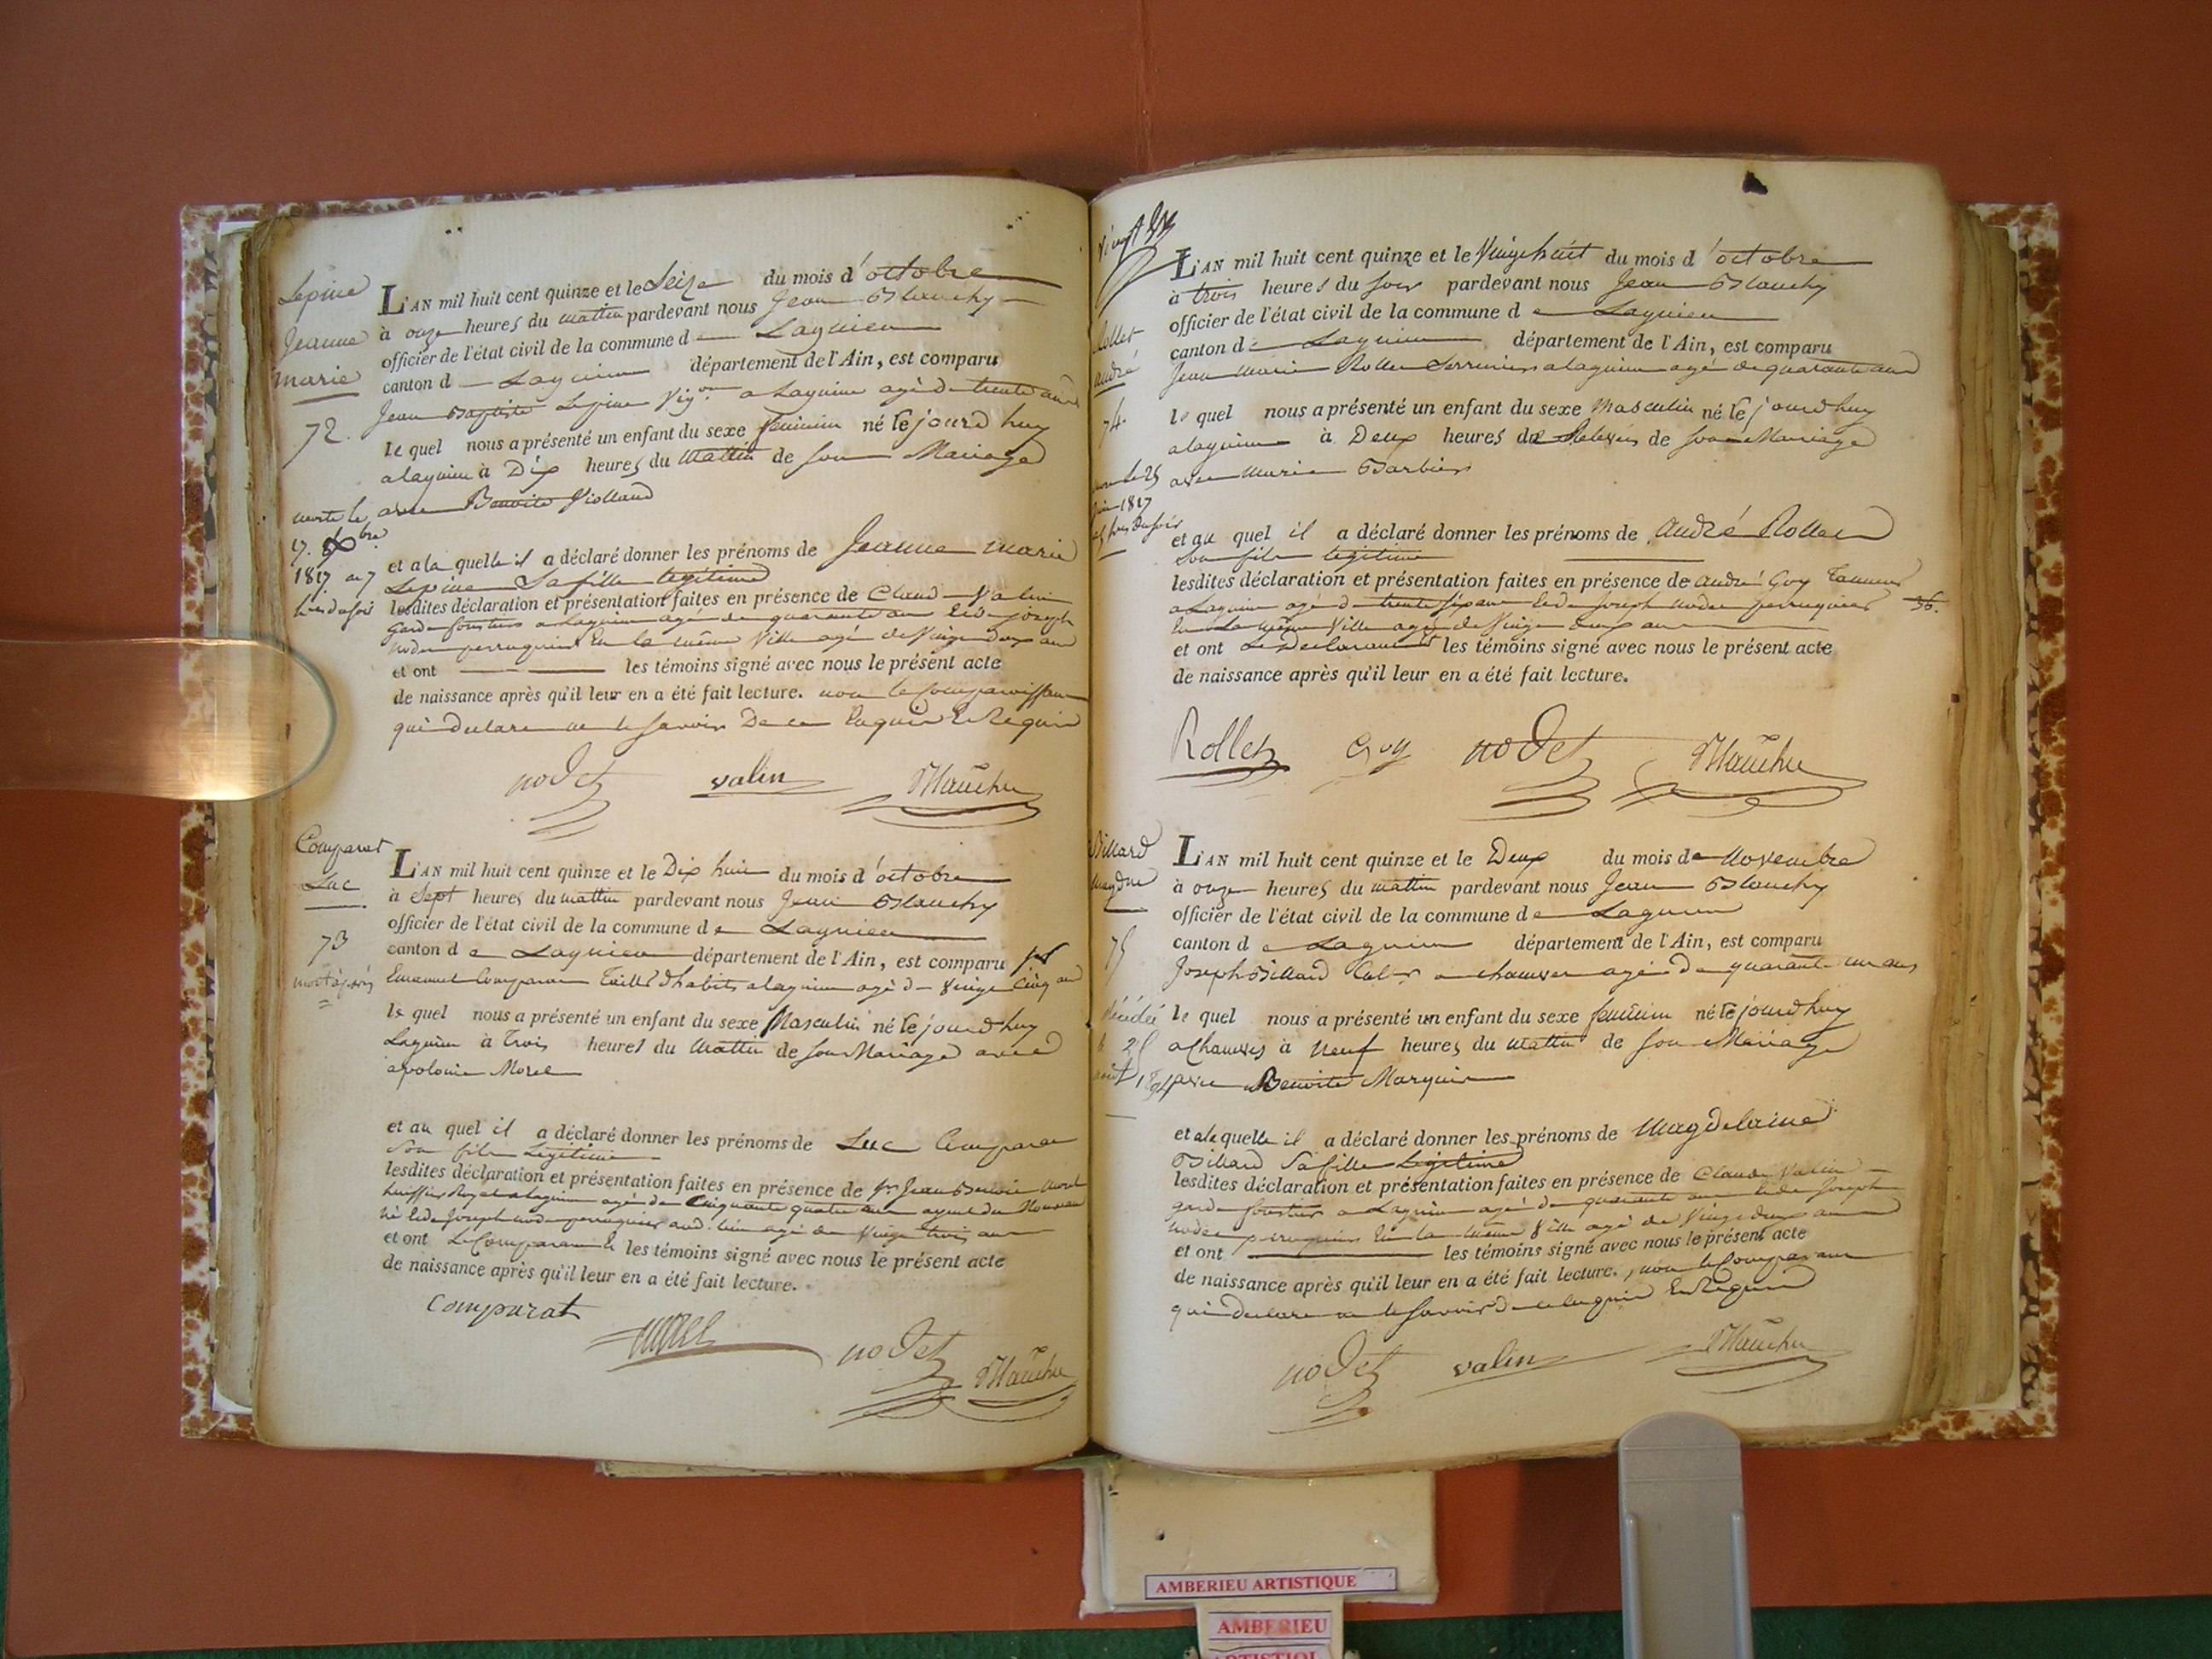 Lepine
Jeanne
marie
72.
morte le
17. 8bre
1817 a 7
hres du soir
L'AN mil huit cent quinze et le Seize du mois d'octobre
à onze heures du mattin pardevant nous Jean Blanchy
officier de l'état civil de la commune de Lagnieu
canton d Lagnieu département de l'Ain, est comparu
Jean Baptiste Lepine Vigon a Lagnieu agé de trente ans
le quel nous a présenté un enfant du sexe feminin né le jourdhuy
a lagnieu à Dix heures du mattin de son Mariage
avec Benoite Violland
et a la quelle il a déclaré donner les prénoms de Jeanne marie
Lepine Sa fille legitime
lesdites déclaration et présentation faites en présence de Claude Valin
garde forestier a Lagnieu agé de quarante ans joseph
nodet perruquier en la même Ville agé de Vingt deux ans
et ont les témoins signé avec nous le présent acte
de naissance après qu'il leur en a été fait lecture. non le comparoissant
qui declare ne le savoir De ce Enquis Requis
nodet valin Blanchy
Comparat
Luc
73
mort à paris
L'AN mil huit cent quinze et le Dix huit du mois d'octobre
à Sept heures du mattin pardevant nous Jean Blanchy
officier de l'état civil de la commune de Lagnieu
canton de Lagnieu département de l'Ain, est comparu
Emanuel Comparat Taillr dhabits a lagnieu agé de Vingt Cinq ans
le quel nous a présenté un enfant du sexe Masculin né le jourdhuy
Lagnieu à Trois heures du mattin de son Mariage avec
apolonie Morel
et au quel il a déclaré donner les prénoms de Luc Comparat
Son fils Legitime
lesdites déclaration et présentation faites en présence de Sr Jean Benoit Morel
huissier Royal a Lagnieu agé de Cinquante quatre ans ayeul du Nouveau
né Joseph nodet perruquier aud. lieu agé de Vingt trois ans
et ont Le Comparant & les témoins signé avec nous le présent acte
de naissance après qu'il leur en a été fait lecture.
Comparat
morel nodet Blanchy
Rollet
andré
74.
1817
L'AN mil huit cent quinze et le Vingt huit du mois d'octobre
à trois heures du soir pardevant nous Jean Blanchy
officier de l'état civil de la commune de Lagnieu
canton de Lagnieu département de l'Ain, est comparu
Jean Marie Rollet Serrurier a lagnieu agé de quarante ans
le quel nous a présenté un enfant du sexe Masculin né le jourdhuy
a lagnieu à Deux heures du de son Mariage
avec Marie Barbier
et au quel il a déclaré donner les prénoms de André Rollet
Son fils legitime
lesdites déclaration et présentation faites en présence de andré Guy Tanneur
a Lagnieu agé de trente six ans Joseph nodet perruquier 36.
en la même Ville agé de Vingt deux ans
et ont Le Declarant & les témoins signé avec nous le présent acte
de naissance après qu'il leur en a été fait lecture.
Rollet Guy nodet Blanchy
Billard
magdne
75
décédée
L'AN mil huit cent quinze et le Deux du mois de Novembre
à onze heures du mattin pardevant nous Jean Blanchy
officier de l'état civil de la commune de Lagnieu
canton de Lagnieu département de l'Ain, est comparu
Joseph Billard Cultr a chauver agé De quarante un ans
le quel nous a présenté un enfant du sexe feminin né le jourdhuy
a Chauver à neuf heures du mattin de son Mariage
avec Benoite Marquis
et a la quelle il a déclaré donner les prénoms de Magdelaine
Billard Sa fille Legitime
lesdites déclaration et présentation faites en présence de Claude Valin
garde forestier a Lagnieu agé de quarante ans Joseph
nodet perruquier en la même Ville agé de Vingt deux ans
et ont les témoins signé avec nous le présent acte
de naissance après qu'il leur en a été fait lecture., non le Comparant
qui declare ne le savoir de ce enquis Requis
nodet valin Blanchy
AMBERIEU ARTISTIQUE
AMBERIEU
ARTISTIQUE